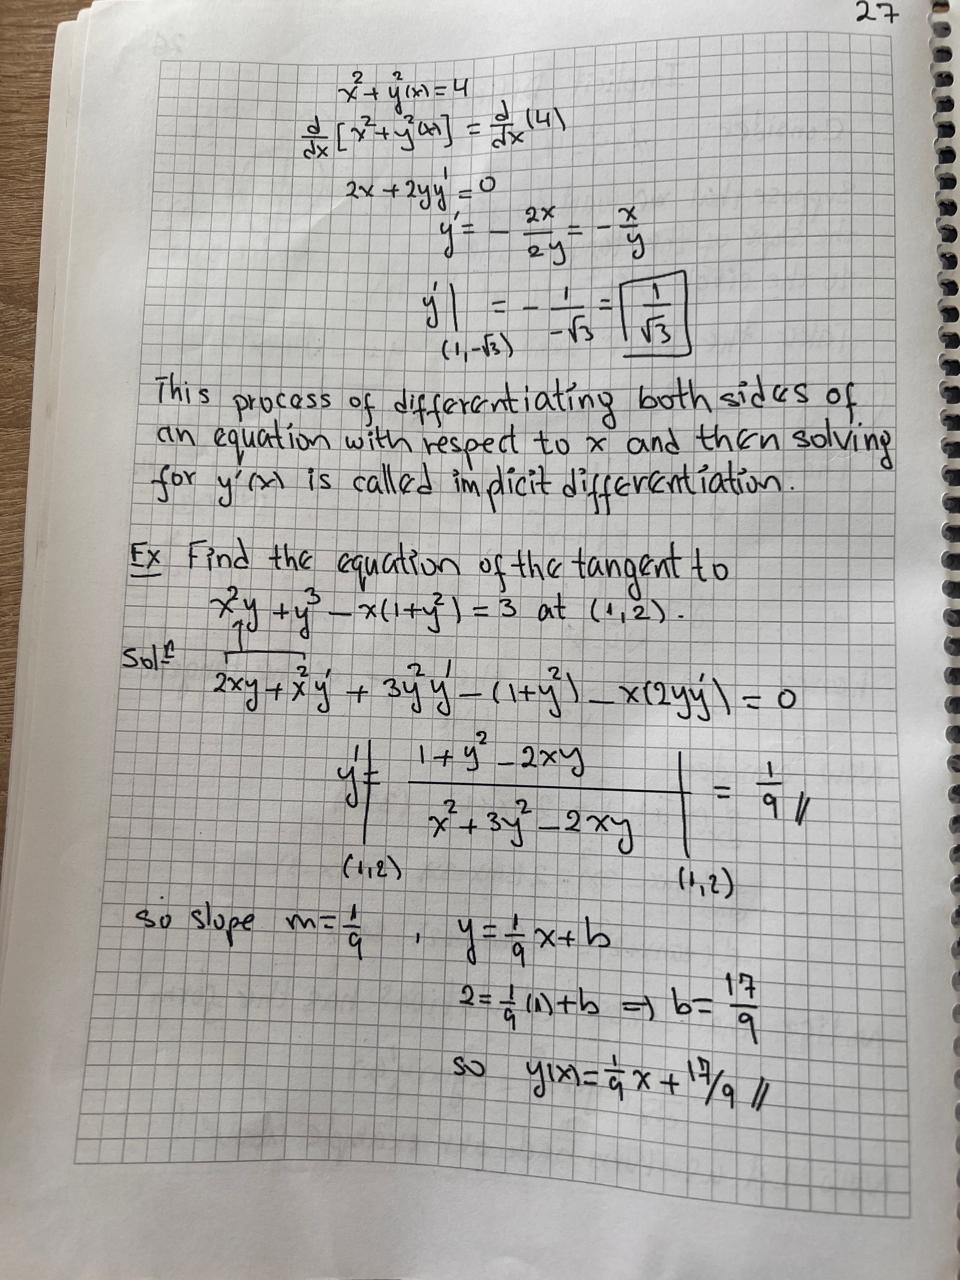 27
x² + y²(x) = 4
d/dx [x² + y²(x)] = d/dx (4)
2x + 2yy' = 0
y' = - 2x/2y = - x/y
y'|(1,-√3) = - 1/-√3 = 1/√3
This process of differentiating both sides of
an equation with respect to x and then solving
for y'(x) is called implicit differentiation.
Ex Find the equation of the tangent to
x²y + y³ - x(1+y²) = 3 at (1,2).
Solⁿ
2xy + x²y' + 3y²y' - (1+y²) - x(2yy') = 0
y'|(1,2) = (1 + y² - 2xy)/(x² + 3y² - 2xy)|(1,2) = 1/9 //
so slope m = 1/9 , y = 1/9 x + b
2 = 1/9 (1) + b ⇒ b = 17/9
so y(x) = 1/9 x + 17/9 //